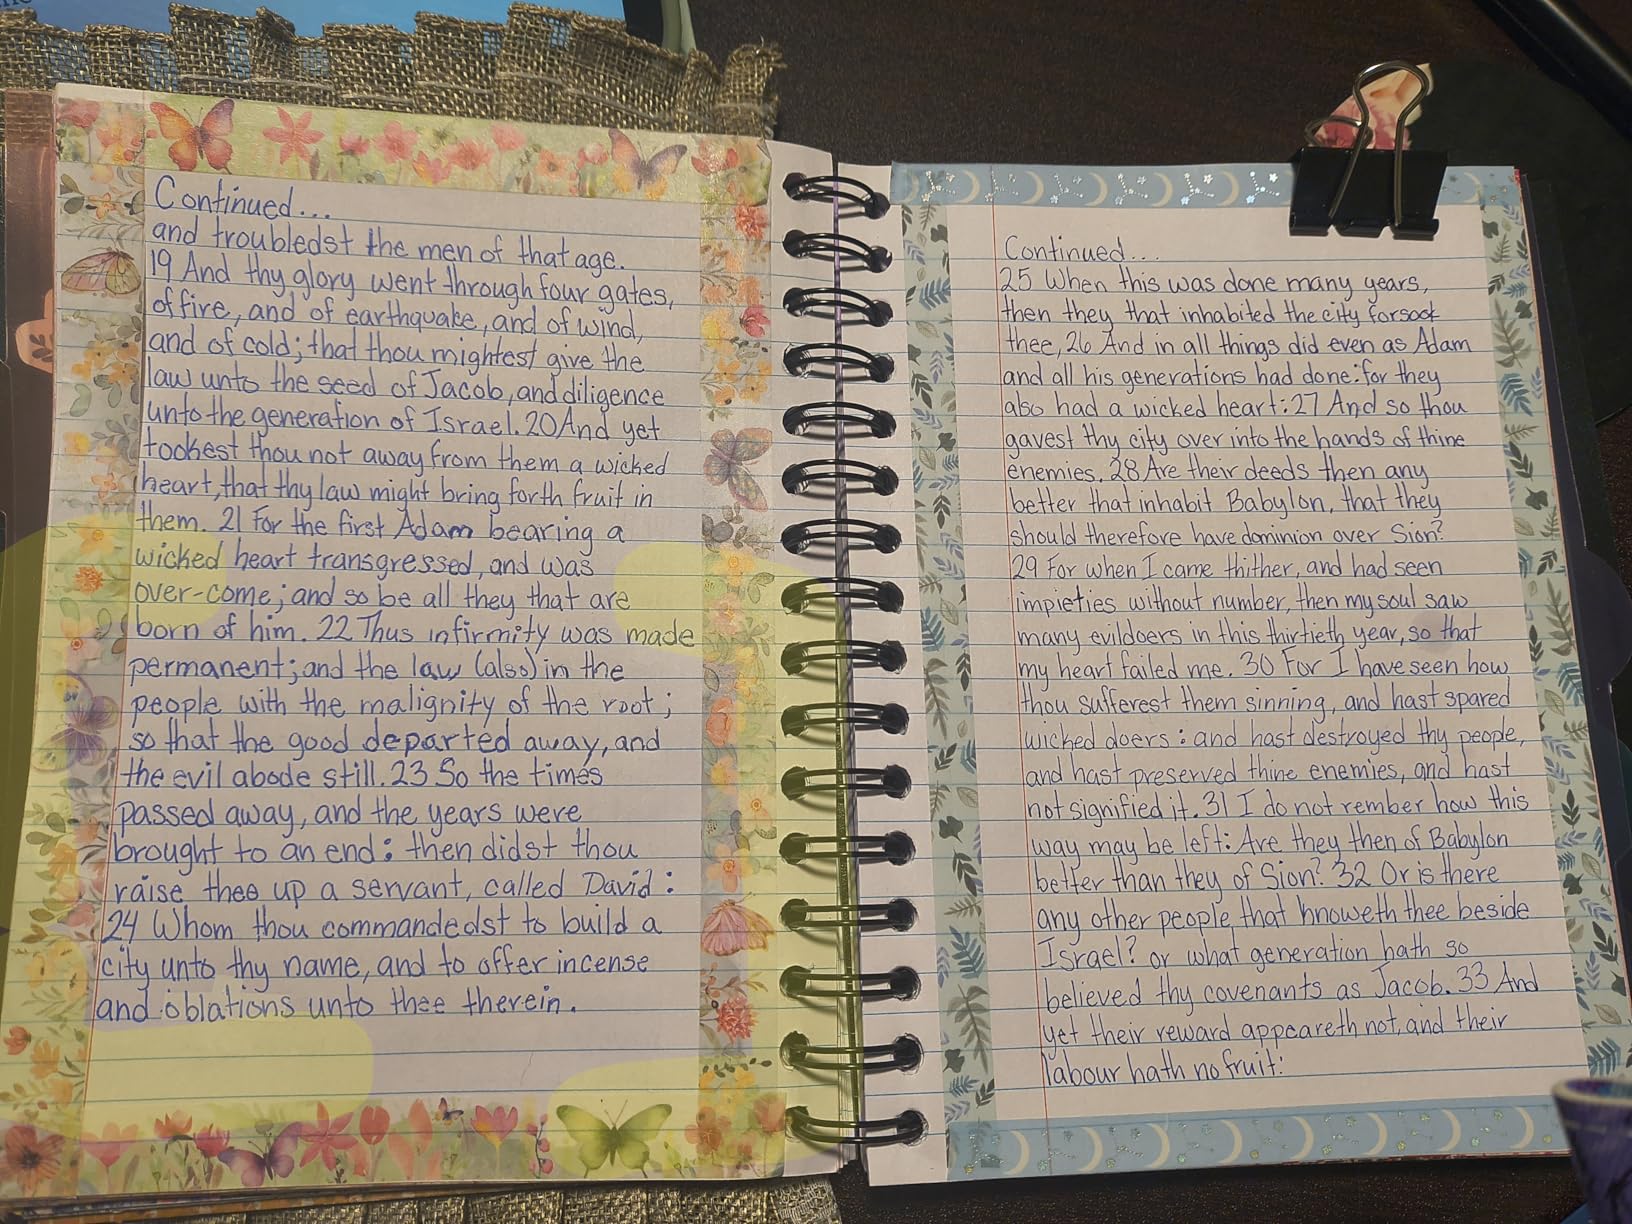 Continued...
and troubledst the men of that age.
19 And thy glory went through four gates,
of fire, and of earthquake, and of wind,
and of cold; that thou mightest give the
law unto the seed of Jacob, and diligence
unto the generation of Israel. 20 And yet
tookest thou not away from them a wicked
heart, that thy law might bring forth fruit in
them. 21 For the first Adam bearing a
wicked heart transgressed, and was
over-come; and so be all they that are
born of him. 22 Thus infirmity was made
permanent; and the law (also) in the
people with the malignity of the root;
so that the good departed away, and
the evil abode still. 23 So the times
passed away, and the years were
brought to an end: then didst thou
raise thee up a servant, called David:
24 Whom thou commandedst to build a
city unto thy name, and to offer incense
and oblations unto thee therein.
Continued...
25 When this was done many years,
then they that inhabited the city forsook
thee, 26 And in all things did even as Adam
and all his generations had done: for they
also had a wicked heart: 27 And so thou
gavest thy city over into the hands of thine
enemies. 28 Are their deeds then any
better that inhabit Babylon, that they
should therefore have dominion over Sion?
29 For when I came thither, and had seen
impieties without number, then my soul saw
many evildoers in this thirtieth year, so that
my heart failed me. 30 For I have seen how
thou sufferest them sinning, and hast spared
wicked doers: and hast destroyed thy people,
and hast preserved thine enemies, and hast
not signified it. 31 I do not rember how this
way may be left: Are they then of Babylon
better than they of Sion? 32 Or is there
any other people that knoweth thee beside
Israel? or what generation hath so
believed thy covenants as Jacob. 33 And
yet their reward appeareth not, and their
labour hath no fruit: